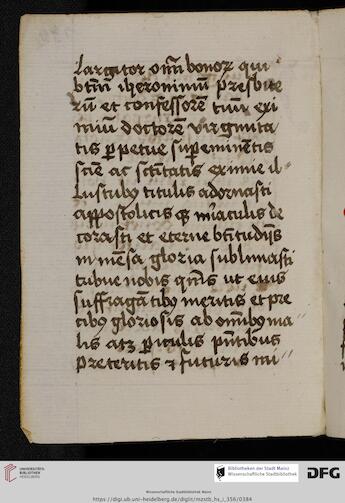 largitor om̄ bonoꝝ qui
btm̄ iheronimū presbite
rū et confessorē tuū exi
miū doctorē virginita
tis ꝑpetue suꝑeminētis
sciē ac sc̄titatis eximie il-
lustribꝫ titulis adornasti
appostolicis qꝫ miraculis de
corasti et eterne btitudīis
in mēsa gloria sublimasti
tribue nobis qm̄s ut eius
suffragātibꝫ meritis et pre
cibꝫ gloriosis ab om̄ibꝫ ma
lis atqꝫ ꝑiculis pn̄tibus
preteritis ⁊ futuris mi
UNIVERSITÄTS-
BIBLIOTHEK
HEIDELBERG
Bibliotheken der Stadt Mainz
Wissenschaftliche Stadtbibliothek
DFG
Wissenschaftliche Stadtbibliothek Mainz
https://digi.ub.uni-heidelberg.de/diglit/mzstb_hs_i_356/0384